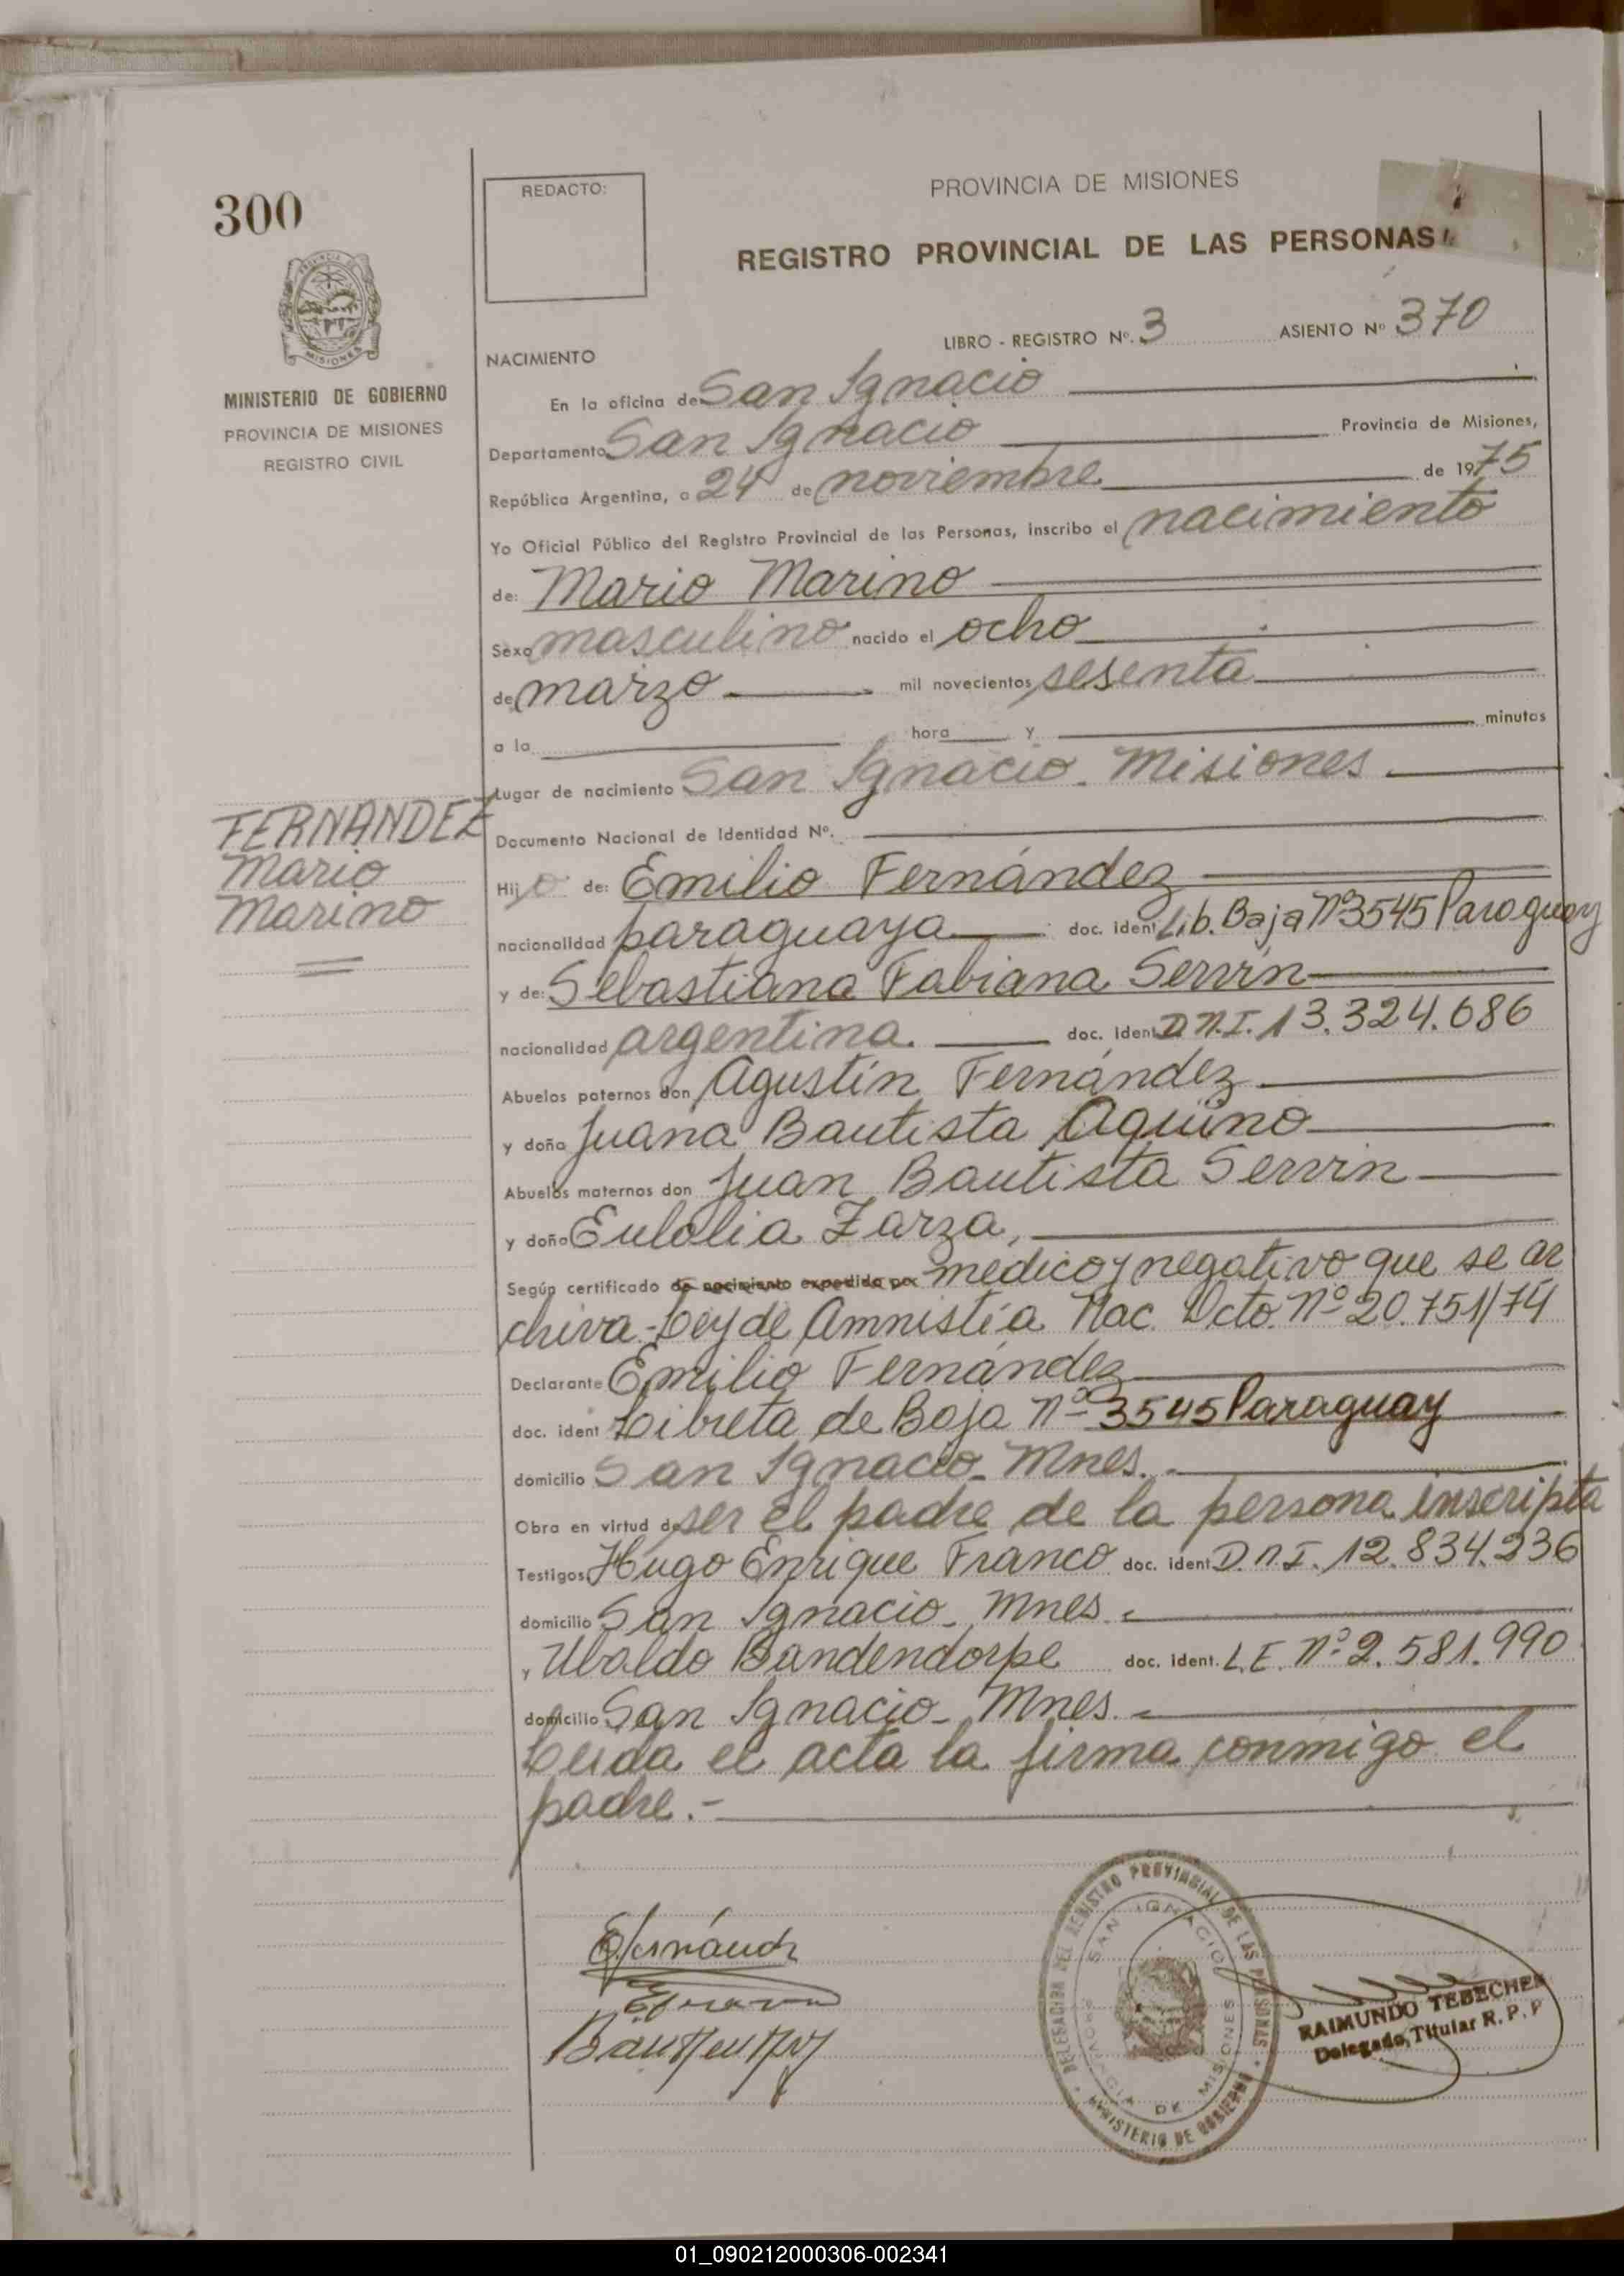 300
REDACTO:
PROVINCIA DE MISIONES
REGISTRO PROVINCIAL DE LAS PERSONAS
LIBRO - REGISTRO Nº. 3 ASIENTO Nº 370
MISIONES
MINISTERIO DE GOBIERNO
PROVINCIA DE MISIONES
REGISTRO CIVIL
NACIMIENTO
En la oficina de San Ignacio
Departamento San Ignacio Provincia de Misiones,
República Argentina, a 24 de noviembre de 1975
Yo Oficial Público del Registro Provincial de las Personas, inscribo el nacimiento
de: Mario Marino
Sexo masculino nacido el ocho
de marzo mil novecientos sesenta
a la hora y minutos
Lugar de nacimiento San Ignacio - Misiones
FERNANDEZ
Mario
Marino
Documento Nacional de Identidad Nº.
Hijo de: Emilio Fernández
nacionalidad paraguaya doc. ident Lib. Baja Nº 3545 Paraguay
y de: Sebastiana Fabiana Servín
nacionalidad argentina. doc. ident D.N.I. 13.324.686
Abuelos paternos don Agustín Fernández
y doña Juana Bautista Aquino
Abuelos maternos don Juan Bautista Servin
y doña Eulolia Zarza,
Según certificado de nacimiento expedido por medico y negativo que se ar
chiva - Ley de Amnistía Nac. Dcto. Nº 20.751/74
Declarante Emilio Fernández
doc. ident Libreta de Baja Nº 3545 Paraguay
domicilio San Ignacio - Mnes.
Obra en virtud de ser el padre de la persona inscripta
Testigos Hugo Enrique Franco doc. ident D.N.I. 12.834.236
domicilio San Ignacio - Mnes.
y Ubaldo Bandendorpe doc. ident. L.E. Nº 2.581.990
domicilio San Ignacio - Mnes.
Leida el acta la firma conmigo el
padre.-
DELEGACION DEL REGISTRO PROVINCIAL DE LAS PERSONAS
SAN IGNACIO
PROVINCIA DE MISIONES
MINISTERIO DE GOBIERNO
RAIMUNDO TEBECHER
Delegado Titular R. P. P
01_090212000306-002341